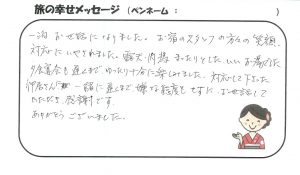 旅の幸せメッセージ (ペンネーム : )
一泊 お世話になりました。お宿のスタッフの方々の笑顔、
対応に いやされました。露天 内湯 まったりとした、いいお湯でした。
夕食宴会も 遅くまで ゆったり十分に楽しみました。対応して下さった
さん 一緒に 遅くまで 嫌な顔も せずに お世話して
いただき 感謝です。
ありがとう ございました。